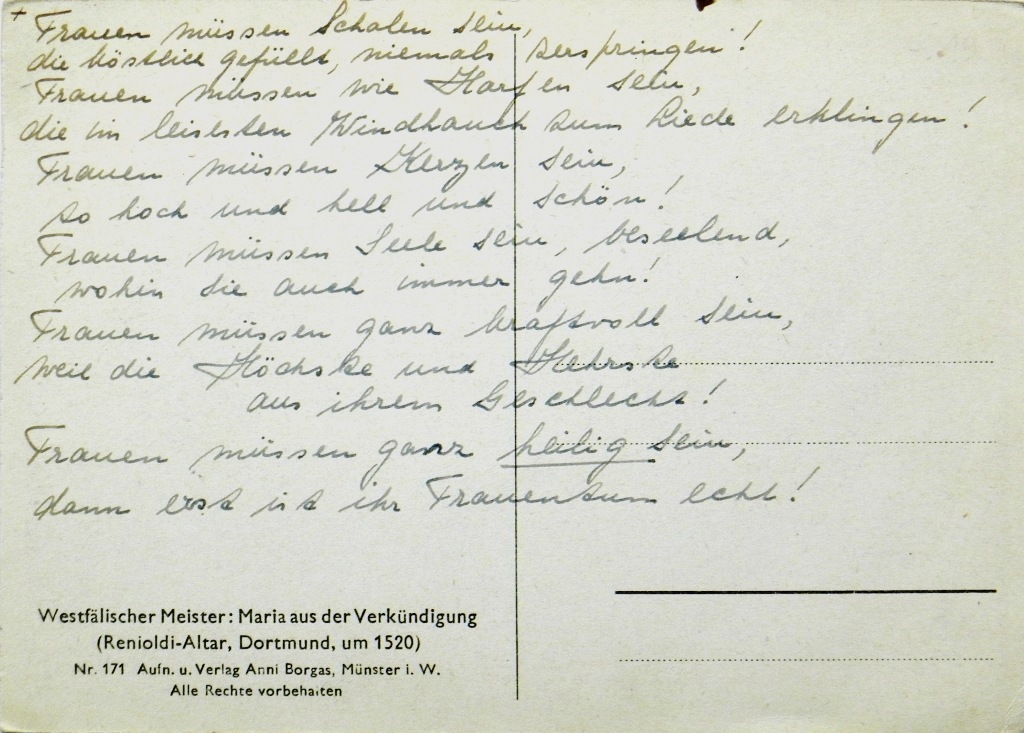 + Frauen müssen Schalen sein,
die köstlich gefüllt, niemals zerspringen!
Frauen müssen wie Harfen sein,
die im leisesten Windhauch zum Liede erklingen!
Frauen müssen Kerzen sein,
so hoch und hell und schön!
Frauen müssen Seele sein, beseelend,
wohin sie auch immer gehn!
Frauen müssen ganz kraftvoll sein,
weil die Höchste und Hehrste
aus ihrem Geschlecht!
Frauen müssen ganz heilig sein,
dann erst ist ihr Frauentum echt!
Westfälischer Meister: Maria aus der Verkündigung
(Renioldi-Altar, Dortmund, um 1520)
Nr. 171 Aufn. u. Verlag Anni Borgas, Münster i. W.
Alle Rechte vorbehalten